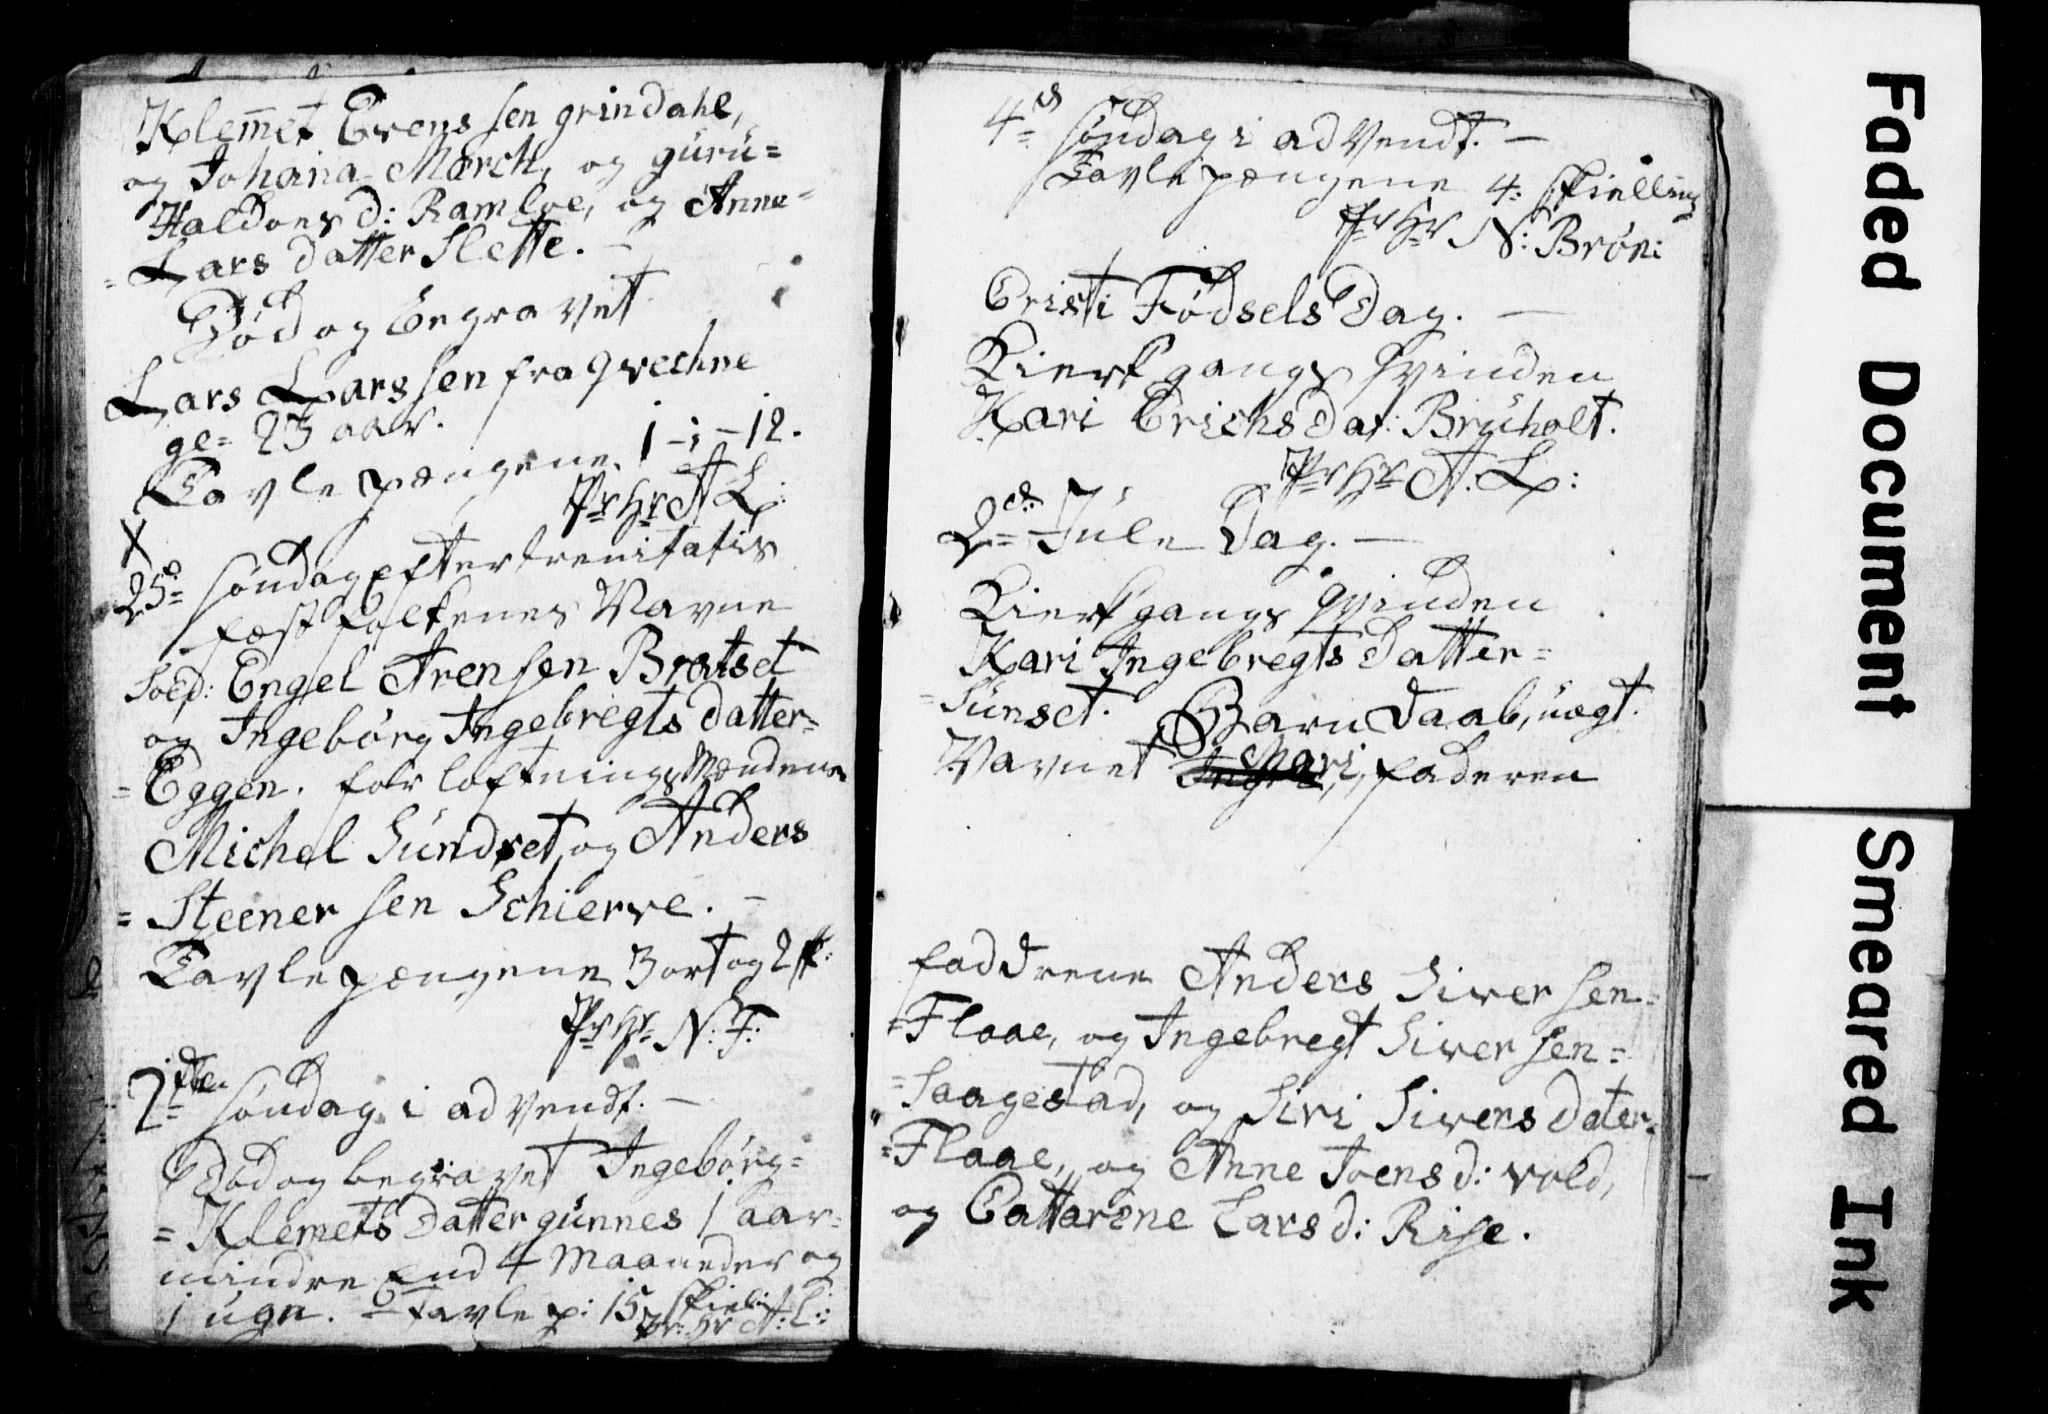 Klem̅et Evens sen grindahl,
og Johana Mærch, og gurü=
Haldoes d: Ramloe, og Anne=
=Lars datter Slette. —
Död og begravet
Lars Larssen fra qvechne
ge= 23 aar.
Tavlepængene. 1-1-12.
Pr Hr A L:
X
25de söndag efter trenitatis
fæstfolkenes Navne
Sold: Engel Arensen Bratset
og Ingebörg Ingebregts datter=
=Eggen. forloftningsMændene
Michel Sündset, og Anders
=Steener sen Schierve. —
Tavlepængene 3 ort og 2 sk:
Pr Hr N: F:
2den söndag i ad Vendt. —
Död og begravet Ingebörg=
=Klemets datter günnes 1 aar
mindre End 4 Maaneder og
1 ugn. — Tavle p: 15 skiel:
Pr: Hr A: L:
4de söndag i ad Vendt. —
Tavlepængene 4: skielling
Pr Hr N: Brön:
Cristi Födsels Dag. —
Kierkgangs qvinden
Kari Erichs Dat: Brüholt.
Pr Hr A. L:
2den Jüle Dag. —
Kierkgangs qvinden
Kari Ingebregts Datter=
=Sünset. Barn Daab, üægt.
Navnet Mari, faderen
faddrene Anders Siver sen=
=Flaae, og Ingebregt Siver sen=
=Saagestad, og Siri Sivers dater=
=Flaae, og Anne Joens d: vold,
og Cattarine Lars d: Rise.
Faded Document
Smeared Ink